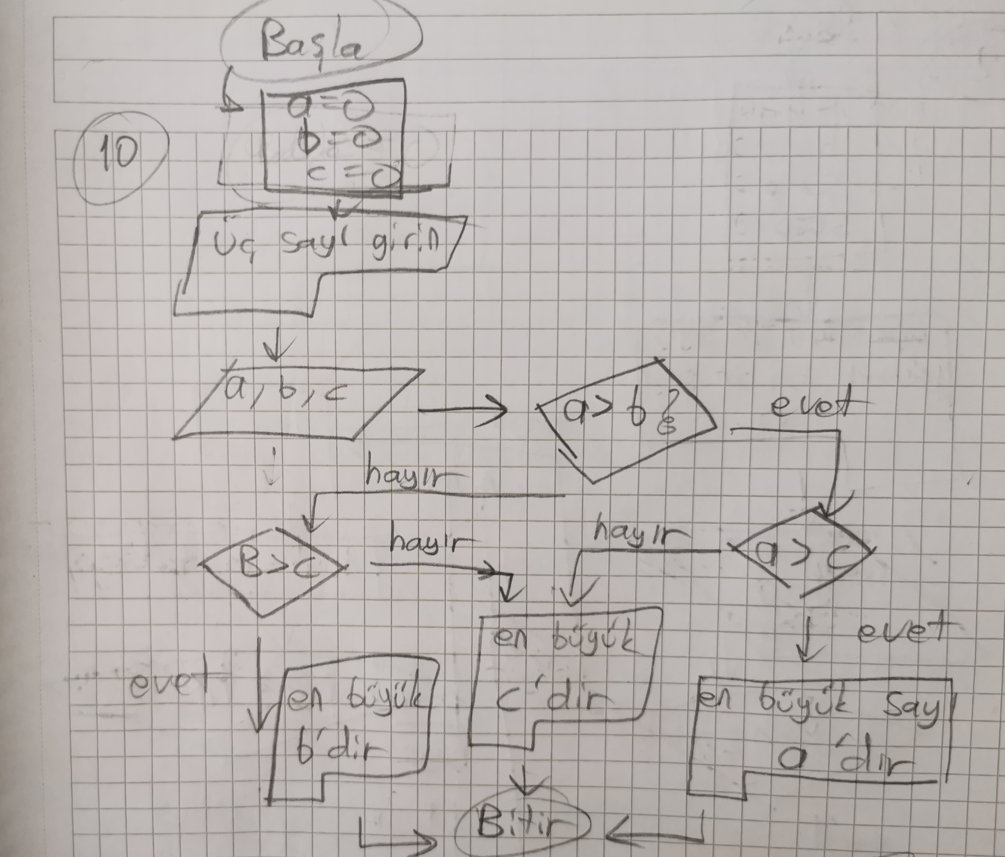 Başla
a=0
b=0
c=0
10
Üç sayı girin
a, b, c
a> b?
evet
hayır
B>c
hayır
hayır
a> c
evet
evet
en büyük
b'dir
en büyük
c'dir
en büyük say
a 'dır
Bitir